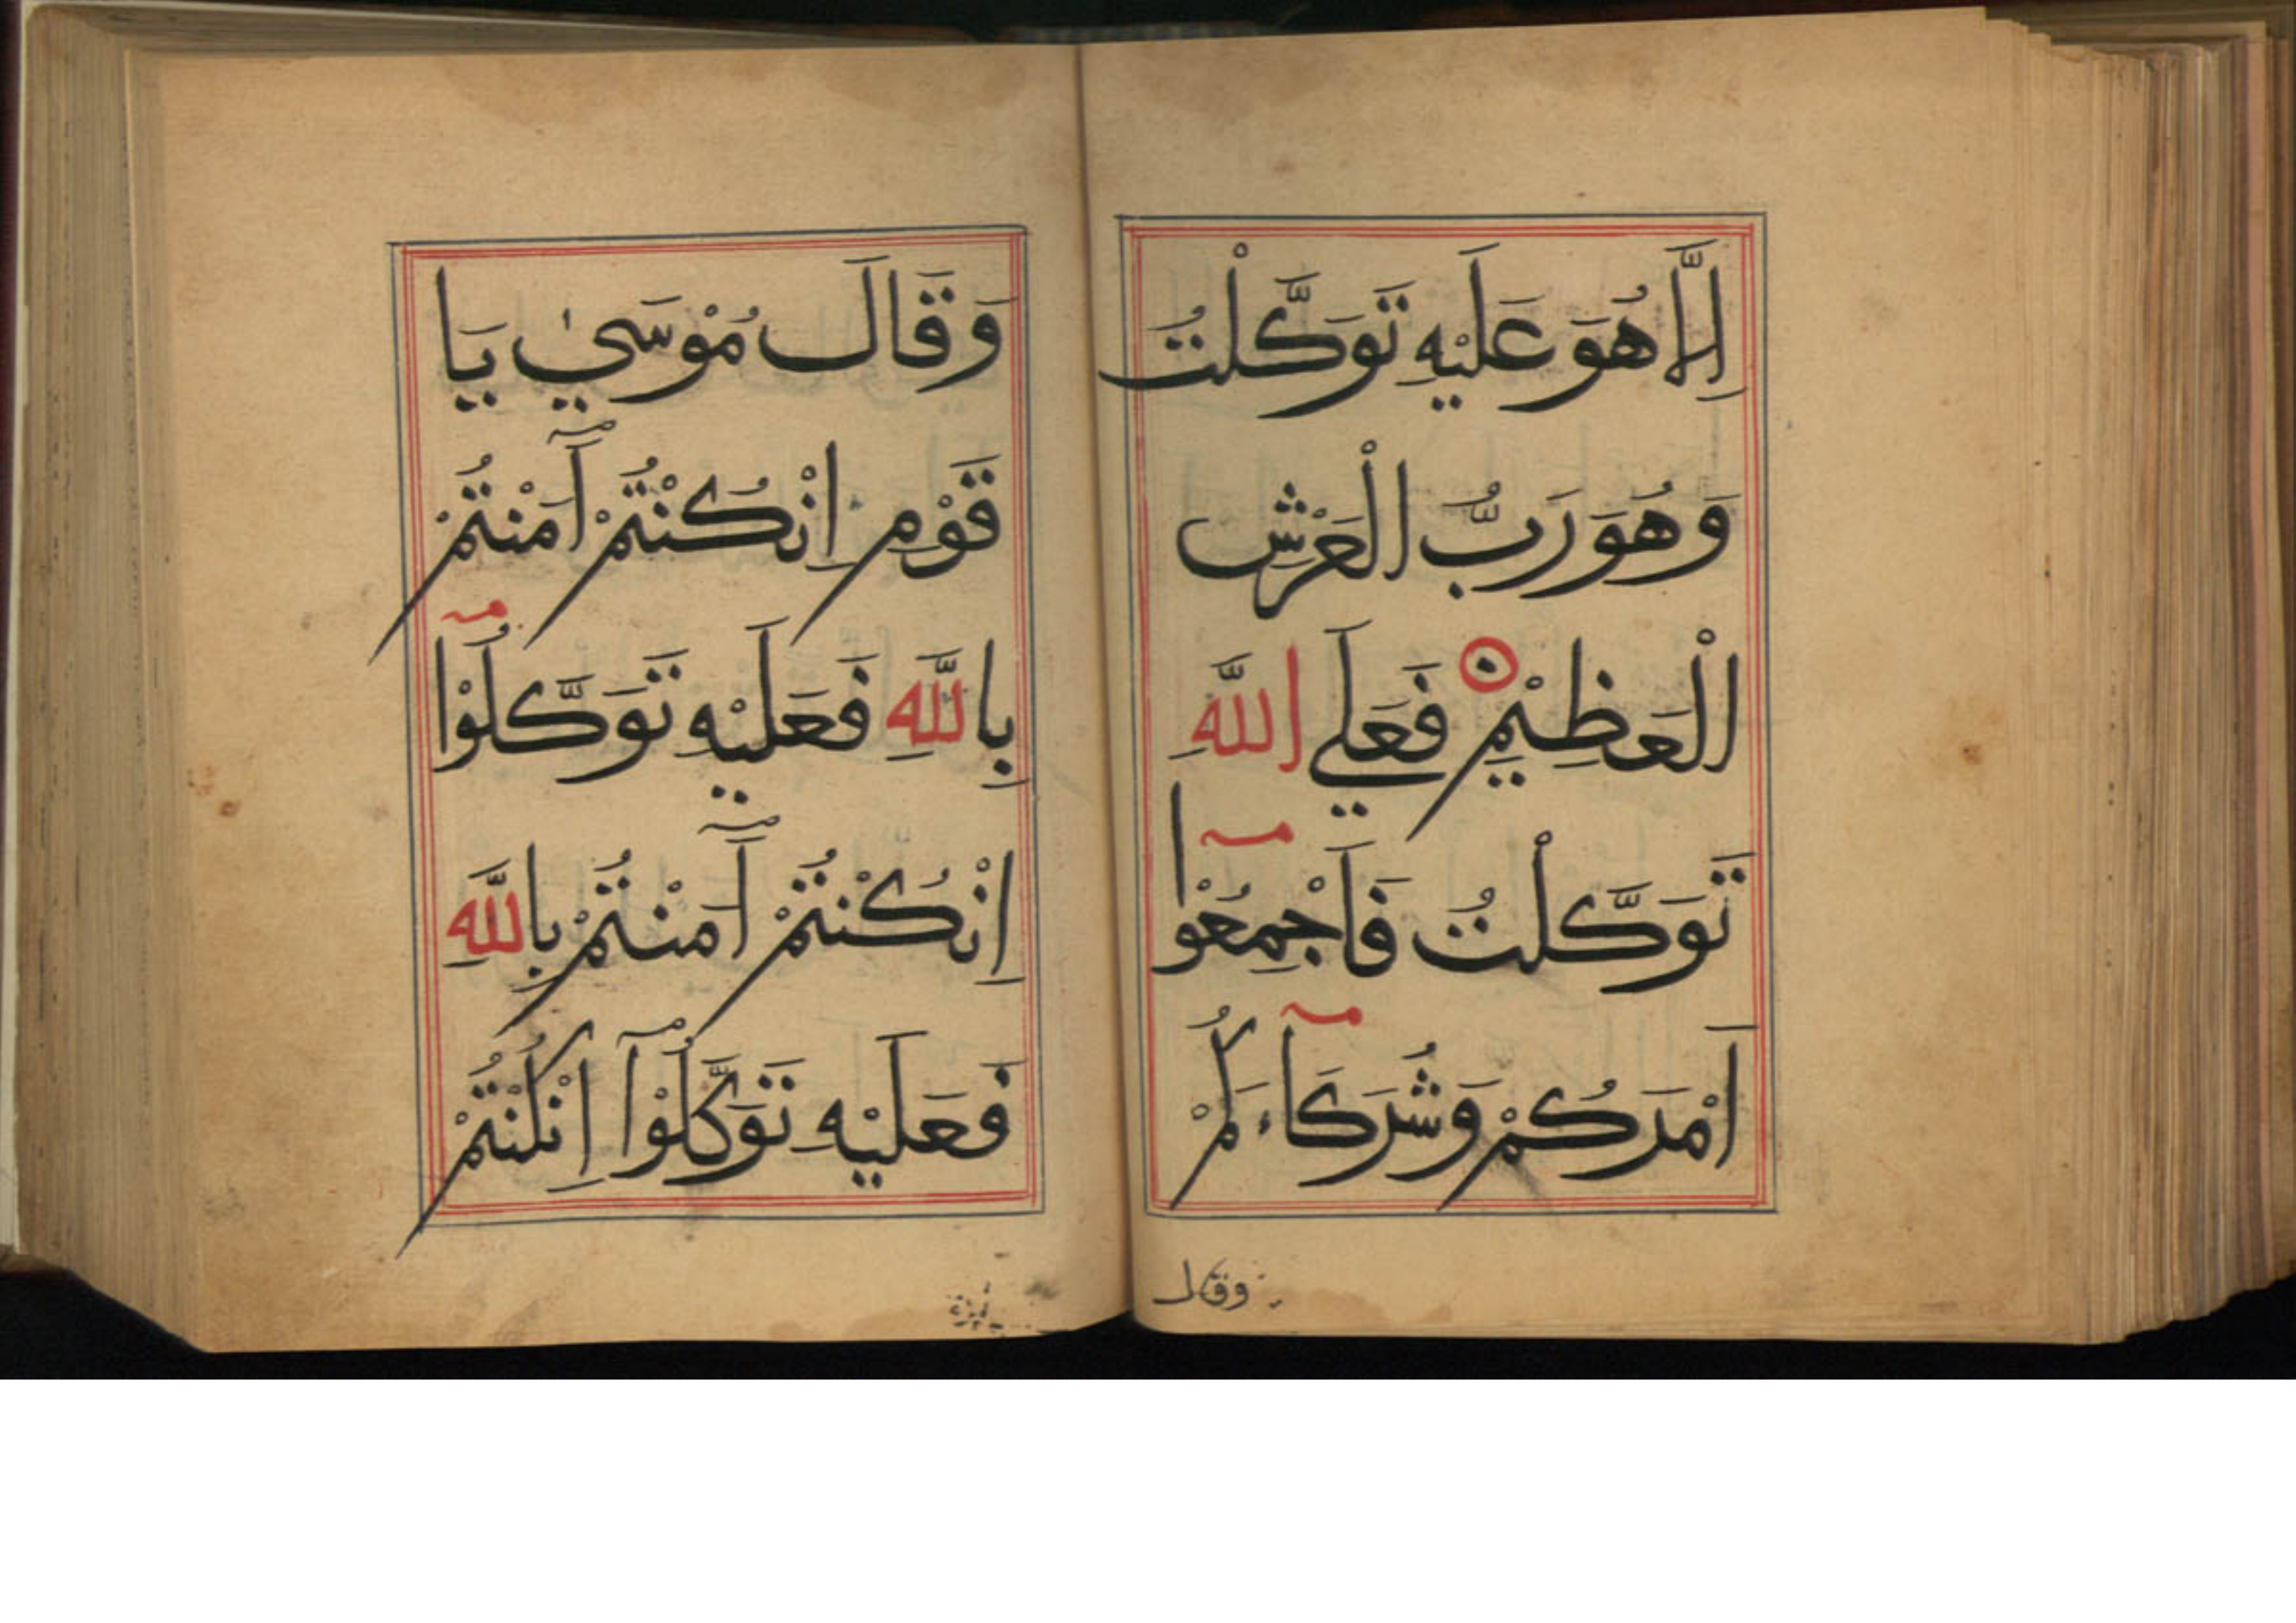 اِلَّا هُوَ عَلَيْهِ تَوَكَّلْتُ
وَهُوَ رَبُّ الْعَرْشِ
الْعَظِيْمِ فَعَلَي اللَّهِ
تَوَكَّلْتُ فَاَجْمِعُوْا
اَمْرَكُمْ وَشُرَكَاءَكُمْ
وقال
وَقَالَ مُوْسَيٰ يَا
قَوْمِ اِنْكُنْتُمْ اٰمَنْتُمْ
بِاللَّهِ فَعَلَيْهِ تَوَكَّلُوْا
اِنْكُنْتُمْ اٰمَنْتُمْ بِاللَّهِ
فَعَلَيْهِ تَوَكَّلُوْآ اِنْكُنْتُمْ